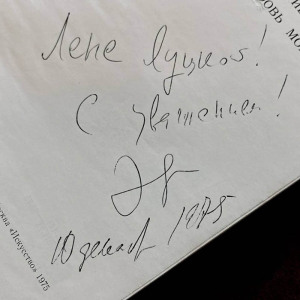 Лене Луцкой!
С уважением!
10 декабря 1975
Москва «Искусство» 1975